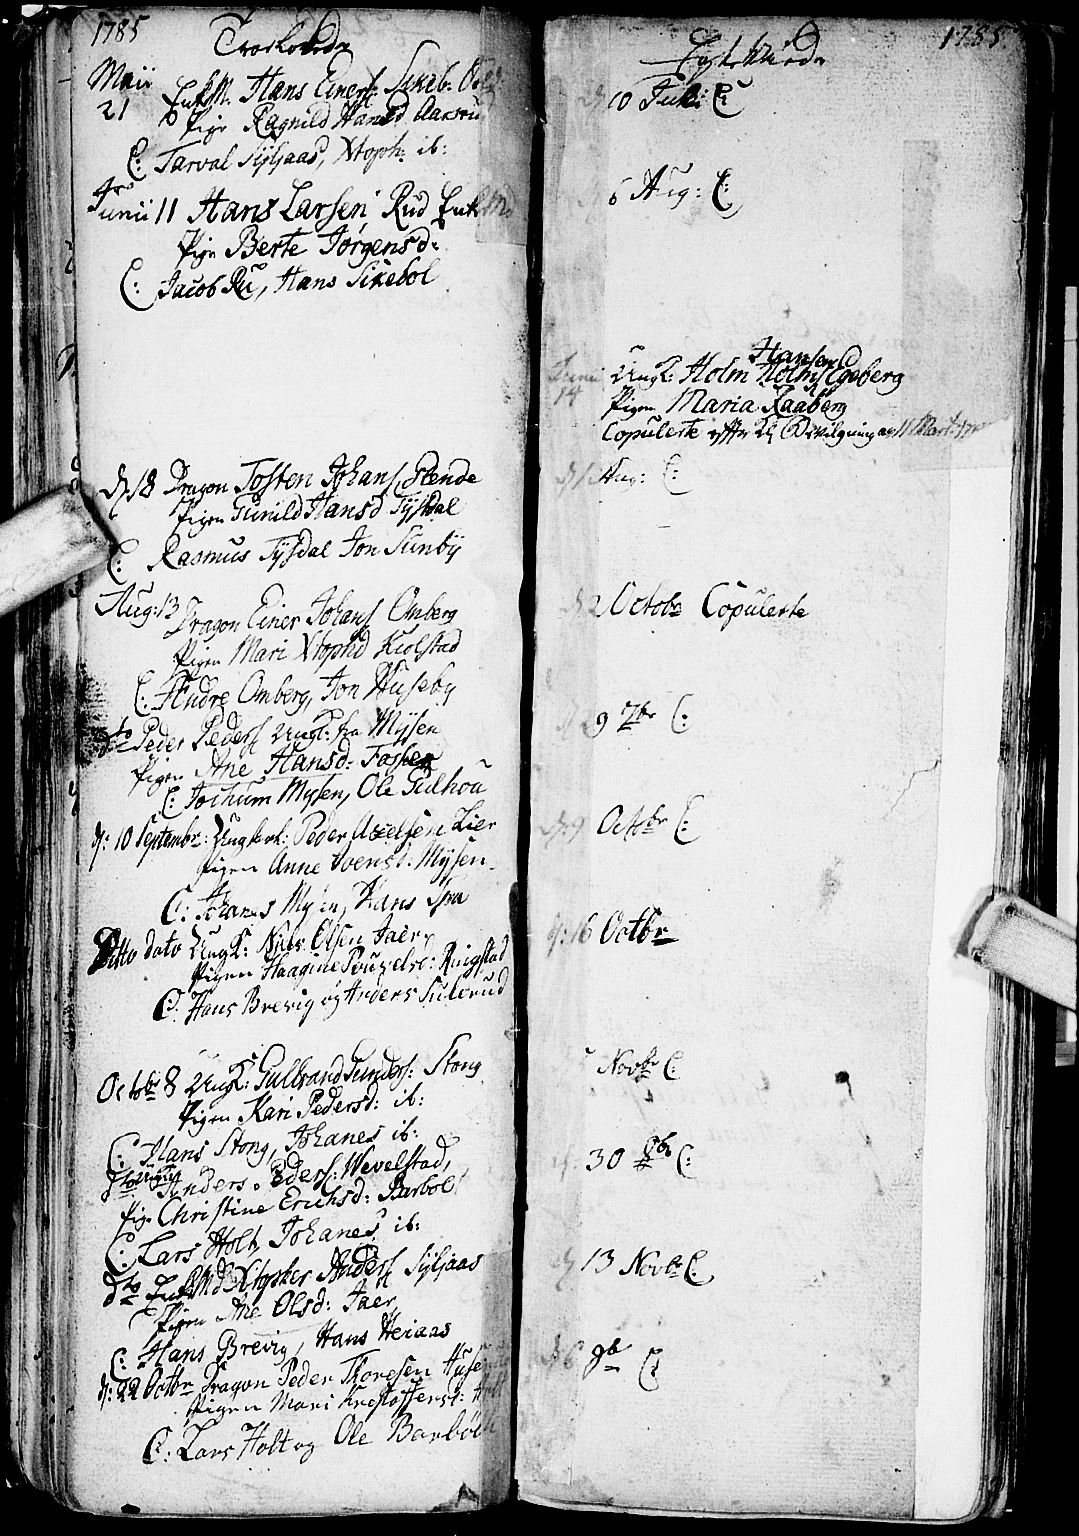 1785
Trolovede
Maii
21 EnkM: Hans Einers: Sikeb:
Pige Ragnild Hansd Aasrud
C: Tarval Sÿljaas, Xtoph: ib:
Junii 11 Hans Larsen Rud Enk
Pige Berte Jørgensd:
C: Jacob Ru, Hans Sikebol
d 18 Dragon Tosten Johans Slende
Pigen Gunild Hansd Tÿsdal
C: Rasmus Tÿsdal Jon Sunbÿ
Aug: 13 Dragon Einer Johans Omberg
Pigen Mari Xtophd Kiolstad
C: Andre Omberg, Jon Huseby
dto Peder Peders Ungk: fra Mÿsen
Pigen Ane Hansd: Fosker
C: Jochum Mysen, Ole Gulhou
d: 10 Septembr: Ungkarl: Peder Axelsen Lier
Pigen Anne Svensd: Mÿsen
C: Johanes Mysen, Hans Spra
Ditto dato UngK: Niels Olsen Jaer
Pigen Haagine Pouvelsd: Ringstad
C: Hans Brevig og Anders Sulerud
Octobr 8 UngK: Gulbrand Gunders: Stong
Pigen Kari Pedersd: ib:
C: Hans Stong, Johanes ib:
dto Ungk Anders Peders: Wevelstad,
Pig: Christine Erichsd: Barbol
C: Lars Holt, Johanes ib:
dto EnkMd Xtopher Anders Sÿljaas
Pigen Ane Olsd: Jaer
C: Hans Brevig, Hans Heiaas
d: 22 Octbr Dragon Peder Thoresen Huse
Pigen Mari Kristoffersd:
C: Lars Holt og Ole Barbøl
1785
Egteviede
10 Juli: C:
6 Aug: C:
Junii 14 Ungk: Holm Hansen Holm Egeberg
Pigen Maria Raaberg
Copulerte efter Bevilgning af 11 Mart:
Aug: C:
2 Octobr Copulerte
9 7br C:
d: 9 Octbr C:
d: 16 Octbr
Novbr C:
30 8br C:
13 Novbr C:
9br C: